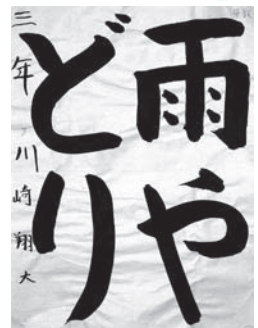 雨や
どり
三年 川崎翔大